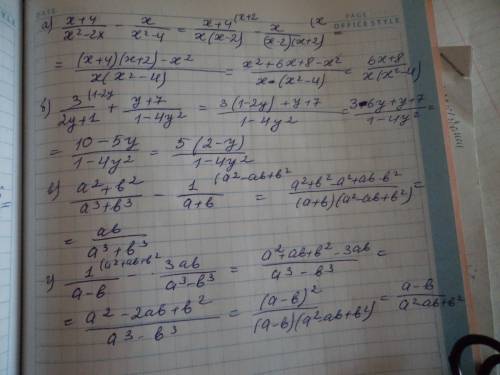 DATE
PAGE
OFFICE STYLE
а) (x+4)/(x²-2x) - x/(x²-4) = (x+4 (x+2)/(x(x-2)) - (x (x)/((x-2)(x+2)) =
= ((x+4)(x+2)-x²)/(x(x²-4)) = (x²+6x+8-x²)/(x·(x²-4)) = (6x+8)/(x(x²-4))
б) (3 (1-2y)/(2y+1) + (y+7)/(1-4y²) = (3(1-2y)+y+7)/(1-4y²) = (3-6y+y+7)/(1-4y²) =
= (10-5y)/(1-4y²) = 5(2-y)/(1-4y²)
в) (a²+b²)/(a³+b³) - (1 (a²-ab+b²)/(a+b) = (a²+b²-a²+ab-b²)/((a+b)(a²-ab+b²)) =
= ab/(a³+b³)
г) (1 (a²+ab+b²)/(a-b) - 3ab/(a³-b³) = (a²+ab+b²-3ab)/(a³-b³) =
= (a²-2ab+b²)/(a³-b³) = (a-b)²/((a-b)(a²+ab+b²)) = (a-b)/(a²ab+b²)